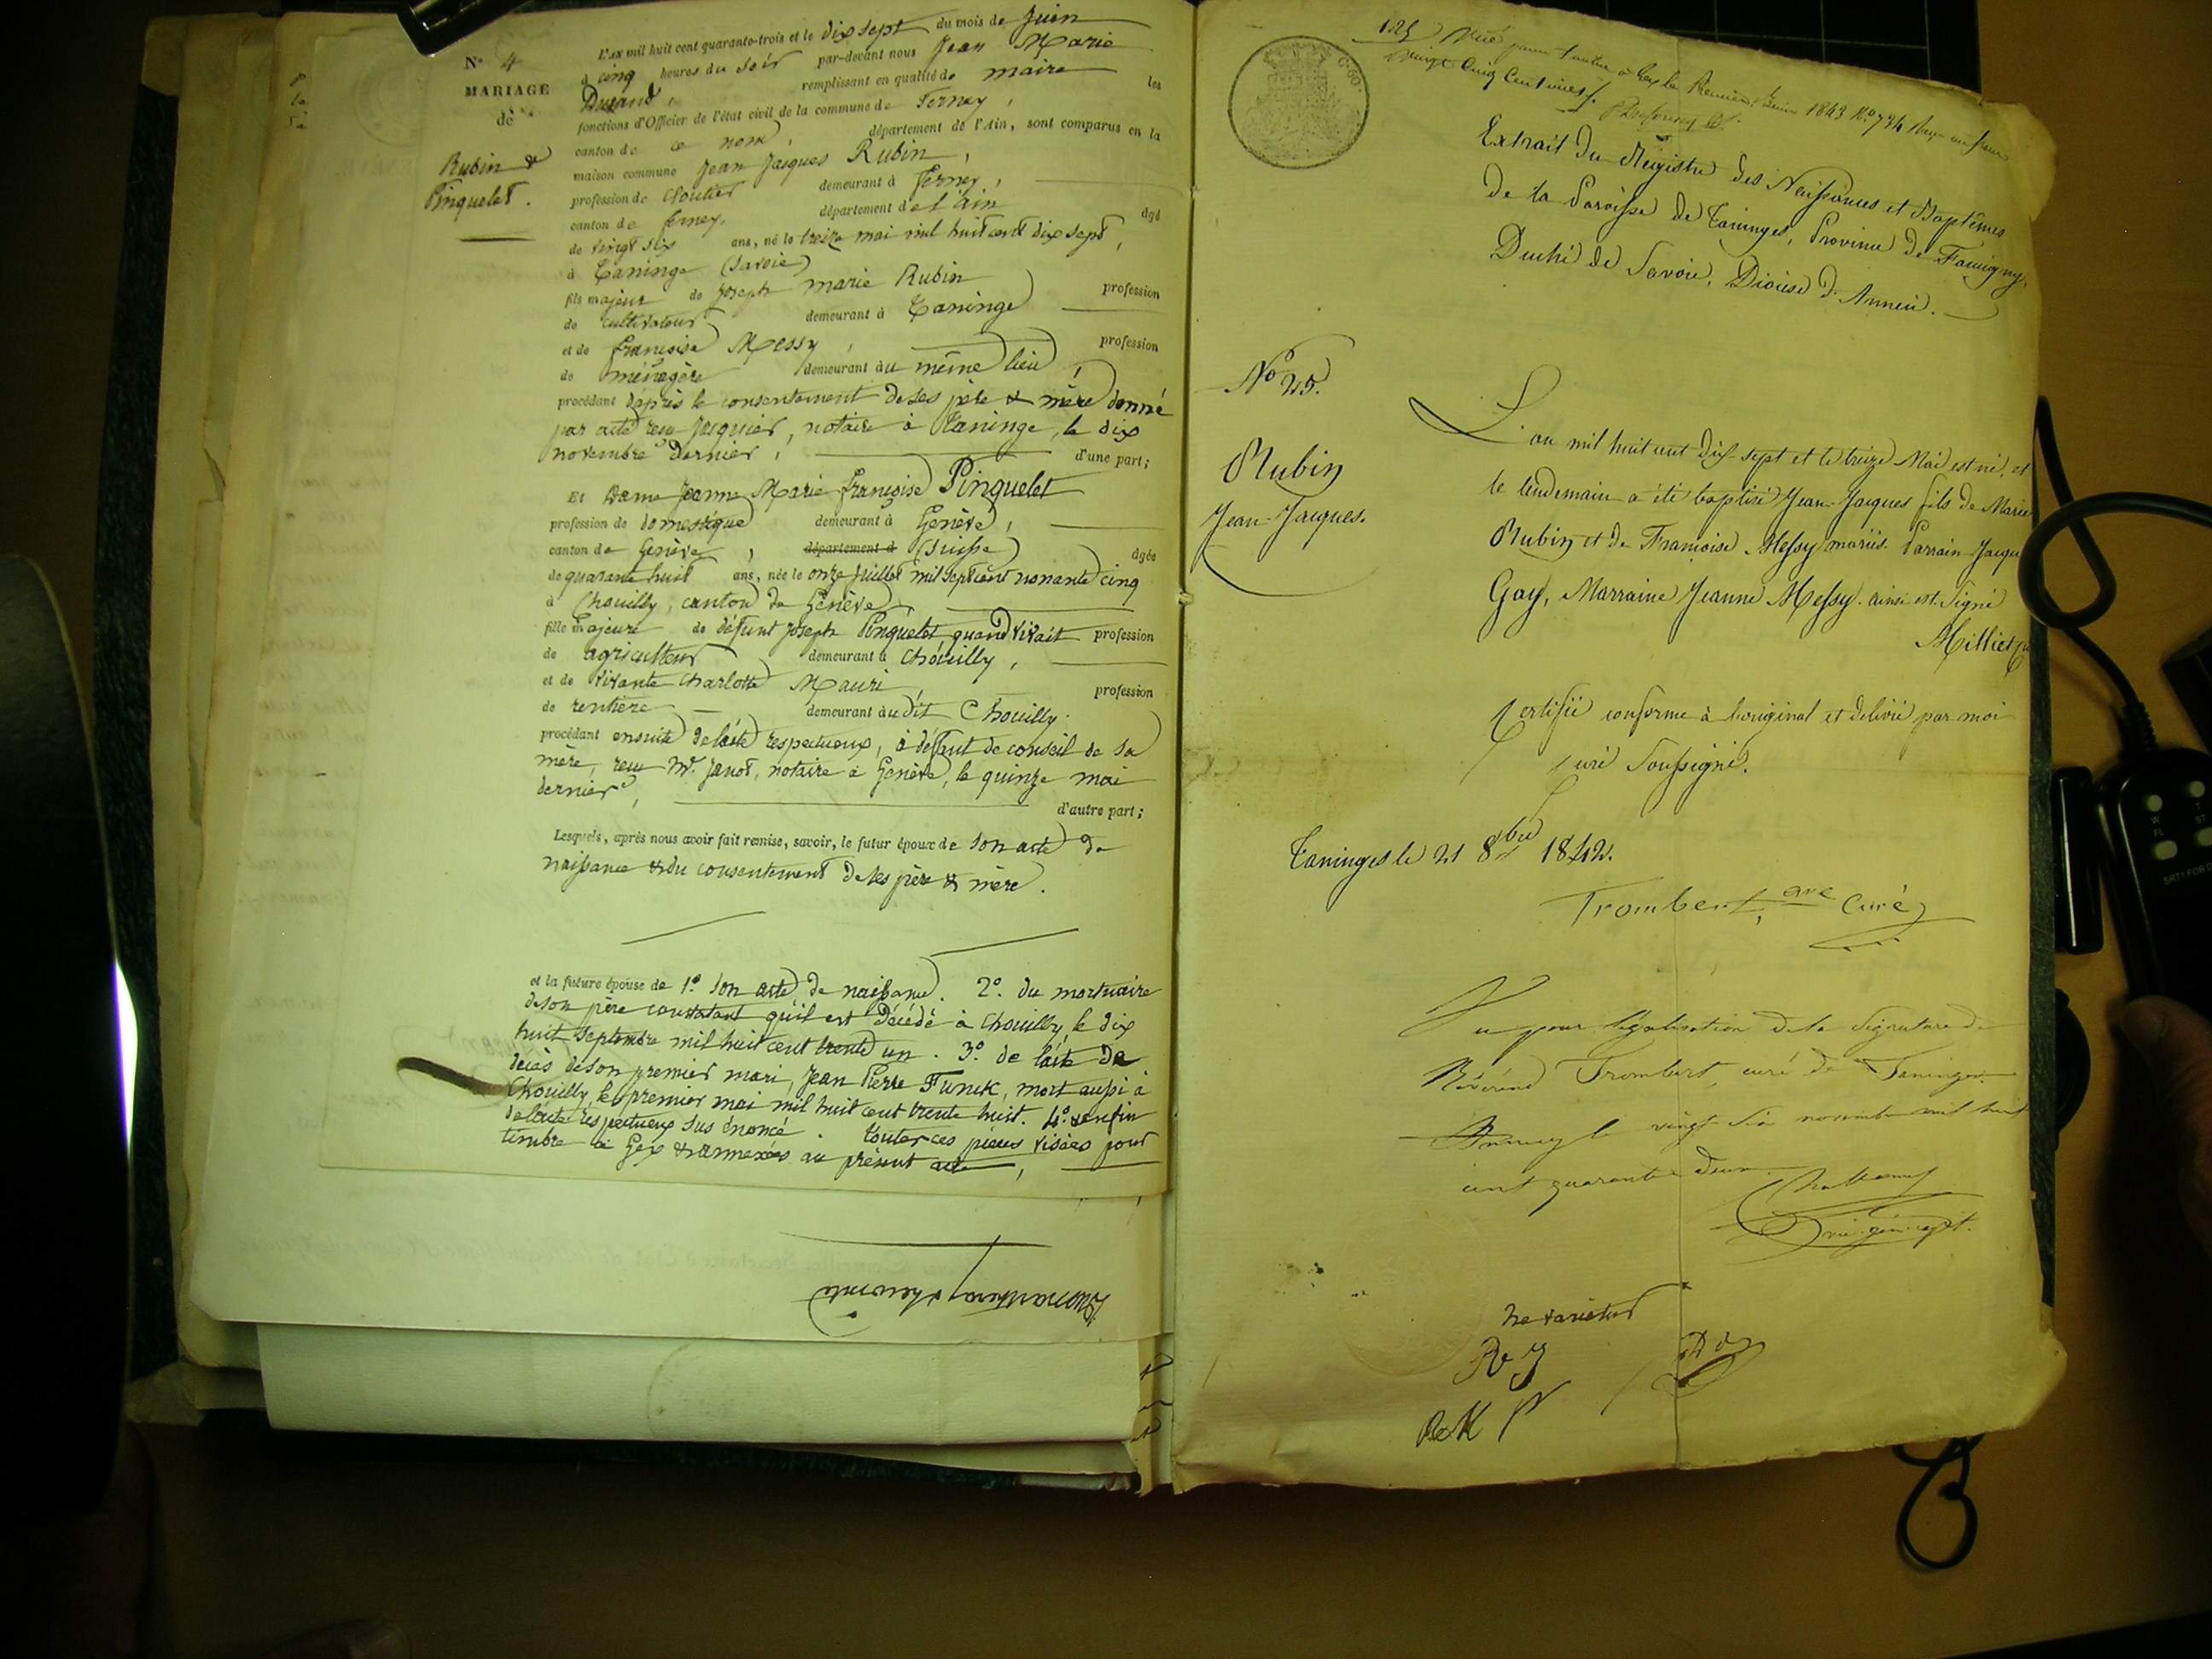 N° 4
MARIAGE
de
Rubin &
Pinquelet.
L'an mil huit cent quarante-trois et le dix sept du mois de Juin
à cinq heures du soir par-devant nous Jean Marie
Durand, remplissant en qualité de maire les
fonctions d'Officier de l'état civil de la commune de Ferney,
canton de ce nom, département de l'Ain, sont comparus en la
maison commune Jean Jacques Rubin,
profession de Cloutier demeurant à Ferney,
canton de ferney. département de l'ain âgé
de vingt six ans, né le treize mai mil huit cent dix sept,
à Taninge (Savoie)
fils majeur de Joseph marie Rubin profession
de cultivateur demeurant à Taninge
et de françoise Messy, profession
de ménagère demeurant au même lieu,
procédant d'après le consentement de ses père & mère donné
par acte reçu Jacquier, notaire à Taninge, le dix
novembre dernier, d'une part;
Et dame Jeanne Marie françoise Pinquelet
profession de domestique demeurant à Genève,
canton de Genève, département d (Suisse) âgée
de quarante huit ans, née le onze Juillet mil sept cent nonante cinq
à Chouilly, canton de Genève,
fille majeure de défunt Joseph Pinquelet, quand vivait profession
de agriculteur demeurant à Chouilly,
et de vivante Charlotte Mauri, profession
de rentière demeurant au dit Chouilly.
procédant ensuite de l'acte respectueux, à défaut de conseil de sa
mère, reçu Mr. Janot, notaire à Genève, le quinze mai
dernier, d'autre part;
Lesquels, après nous avoir fait remise, savoir, le futur époux de son acte de
naissance & du consentement de ses père & mère.
et la future épouse de 1° son acte de naissance. 2° du mortuaire
de son père constatant qu'il est décédé à Chouilly, le dix
huit septembre mil huit cent trente un. 3° de l'acte de
décès de son premier mari, Jean Pierre Funck, mort aussi à
Chouilly, le premier mai mil huit cent trente huit. 4° enfin
de l'acte respectueux sus énoncé. toutes ces pièces visées pour
timbre à Gex & annexées au présent acte,
125 Visé pour timbre à Gex le Premier Juin 1843 N° 734 Reçu un franc
Vingt Cinq Centimes.
Extrait du Régistre des Naissances et Baptêmes
de la Paroisse de Taninges, Province de Faucigny,
Duché de Savoie, Diocèse d'Anneci.
N° 25.
Rubin
Jean-Jacques.
L'an mil huit cent dix-sept et le treize Mai est né, et
le lendemain a été baptisé Jean-Jacques fils de Marie
Rubin et de Françoise Messy mariés. Parrain Jacque
Gay, Marraine Jeanne Messy. ainsi est signé
Milliet
Certifié conforme à l'original et délivré par moi
curé soussigné.
Taninges le 21 8bre 1842.
Trombert, Curé
Vu pour légalisation de la signature de
Révérend Trombert, curé de Taninges.
Annecy le vingt six novembre mil huit
cent quarante deux.
ne varietur
R J